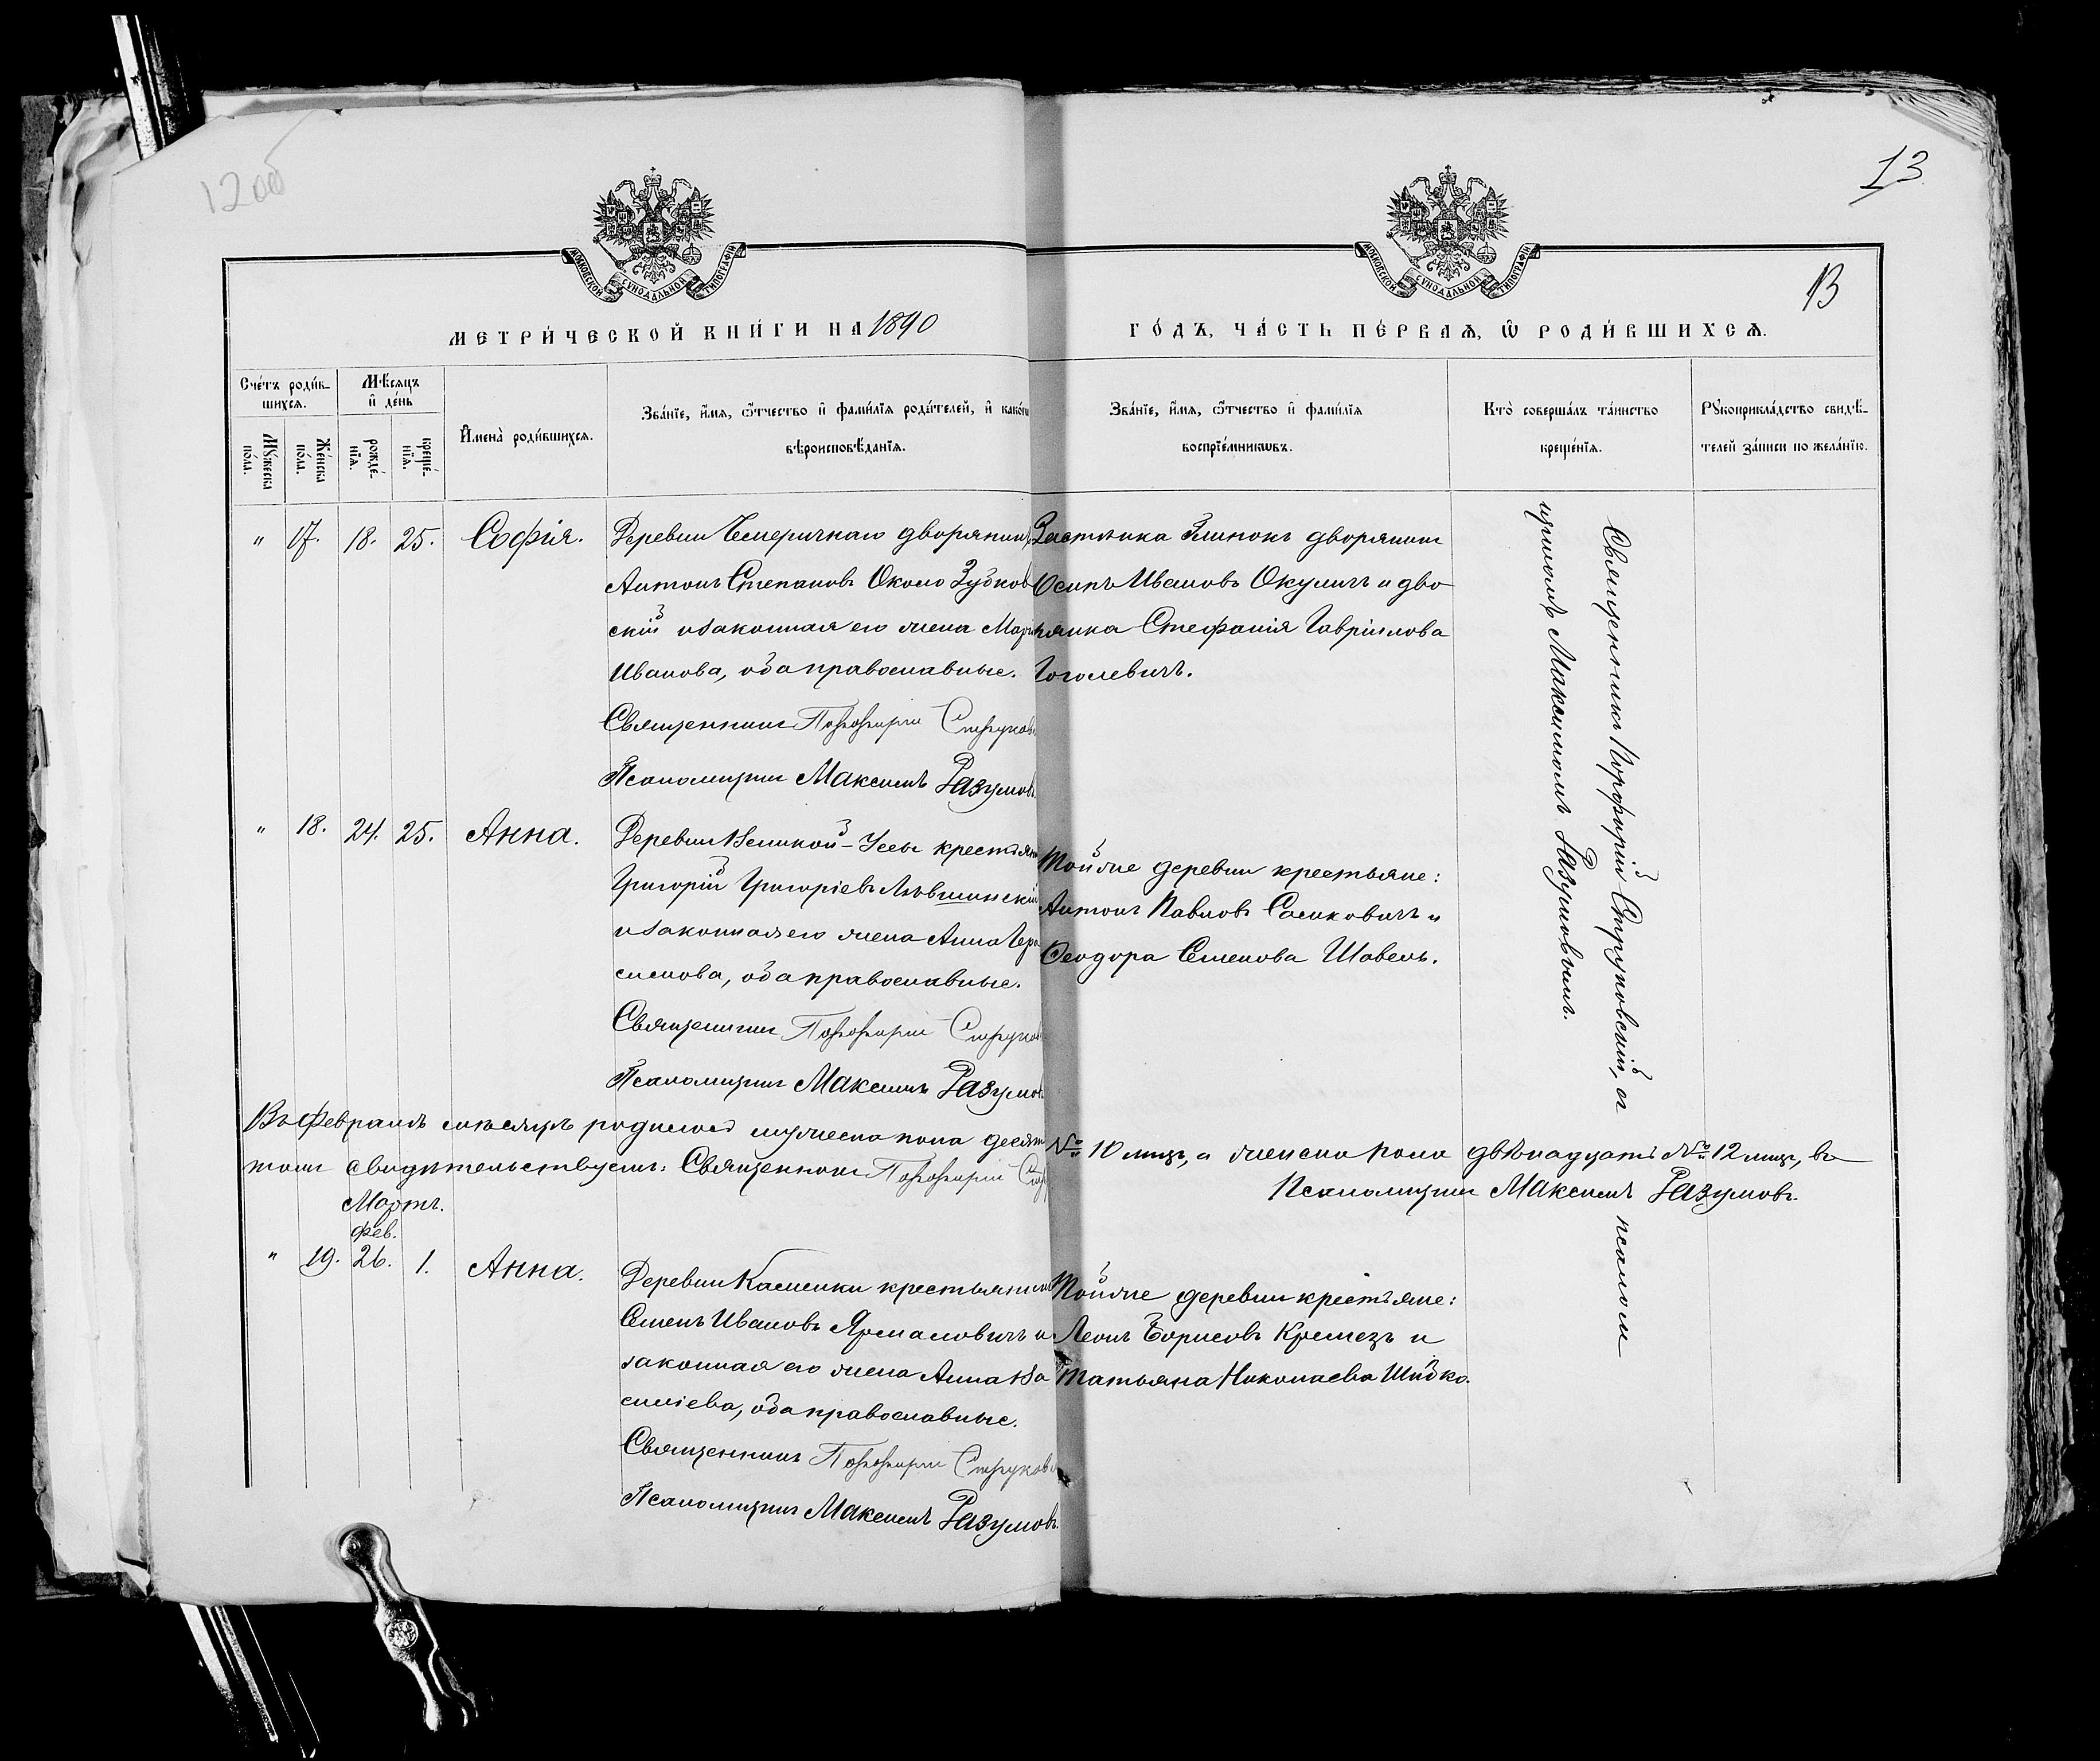 12об
13
13
МОСКОВСКОЙ СУНОДАЛЬНОЙ ТИПОГРАФІИ
МОСКОВСКОЙ СУНОДАЛЬНОЙ ТИПОГРАФІИ
МЕТРИ́ЧЕСКОЙ КНИ́ГИ НА 1890
ГО́ДЪ, ЧА́СТЬ ПЕ́РВАѦ, Ѡ҆ РОДИ́ВШИХСѦ.
Сче́тъ роди́в-
шихсѧ.
Мѣ́сѧцъ
и҆ де́нь
Мꙋ́жеска
по́ла.
Же́нска
по́ла.
рожде́-
нїѧ.
креще́-
нїѧ.
И҆мена̀ роди́вшихсѧ.
Зва́нїе, и҆́мѧ, ѻ҆́тчество и҆ фами́лїѧ роди́телей, и҆ како́гѡ
вѣроисповѣ́данїѧ.
Зва́нїе, и҆́мѧ, ѻ҆́тчество и҆ фами́лїѧ
воспрїе́мникѡвъ.
Кто̀ соверша́лъ та́инство
креще́нїѧ.
Рꙋкоприкла́дство свидѣ́-
телей за́писи по жела́нїю.
" 17. 18. 25. Софія.
Деревни Чемеричнаго дворянинъ
Антонъ Степановъ Около Зубков
скій и законная его жена Марія
Иванова, оба православные.
Священникъ Порфирій Струков
Псаломщикъ Максимъ Разумовъ.
Застѣнка Глинокъ дворянинъ
Осипъ Ивановъ Окуличъ и дво
рянка Стефанія Гаврілова
Гоголевичъ.
" 18. 24. 25. Анна.
Деревни Великой-Усы крестьян
Григорій Григоріевъ Львшинскій
и законная его жена Анна Гера
симова, оба православные.
Священникъ Порфирій Струков
Псаломщикъ Максимъ Разумов
Той же деревни крестьяне:
Антонъ Павловъ Саликовичъ и
Ѳеодора Семенова Шавель.
Священникъ Порфирій Струковскій, съ псалом
щикомъ Максимомъ Разумовымъ.
Въ Февралѣ мѣсяцѣ родилось мужеска пола десять № 10 лицъ, а женска пола двѣнадцать № 12 лицъ, въ
томъ свидѣтельствуемъ: Священникъ Порфирій Стру Псаломщикъ Максимъ Разумовъ.
Мартъ.
фев.
" 19. 26. 1. Анна.
Деревни Каменки крестьянинъ
Семенъ Ивановъ Ярмаловичъ и
законная его жена Анна Ва
силіева, оба православные.
Священникъ Порфирій Струков
Псаломщикъ Максимъ Разумовъ.
Той же деревни крестьяне:
Леонъ Борисовъ Кремезъ и
Татьяна Николаева Шибко.